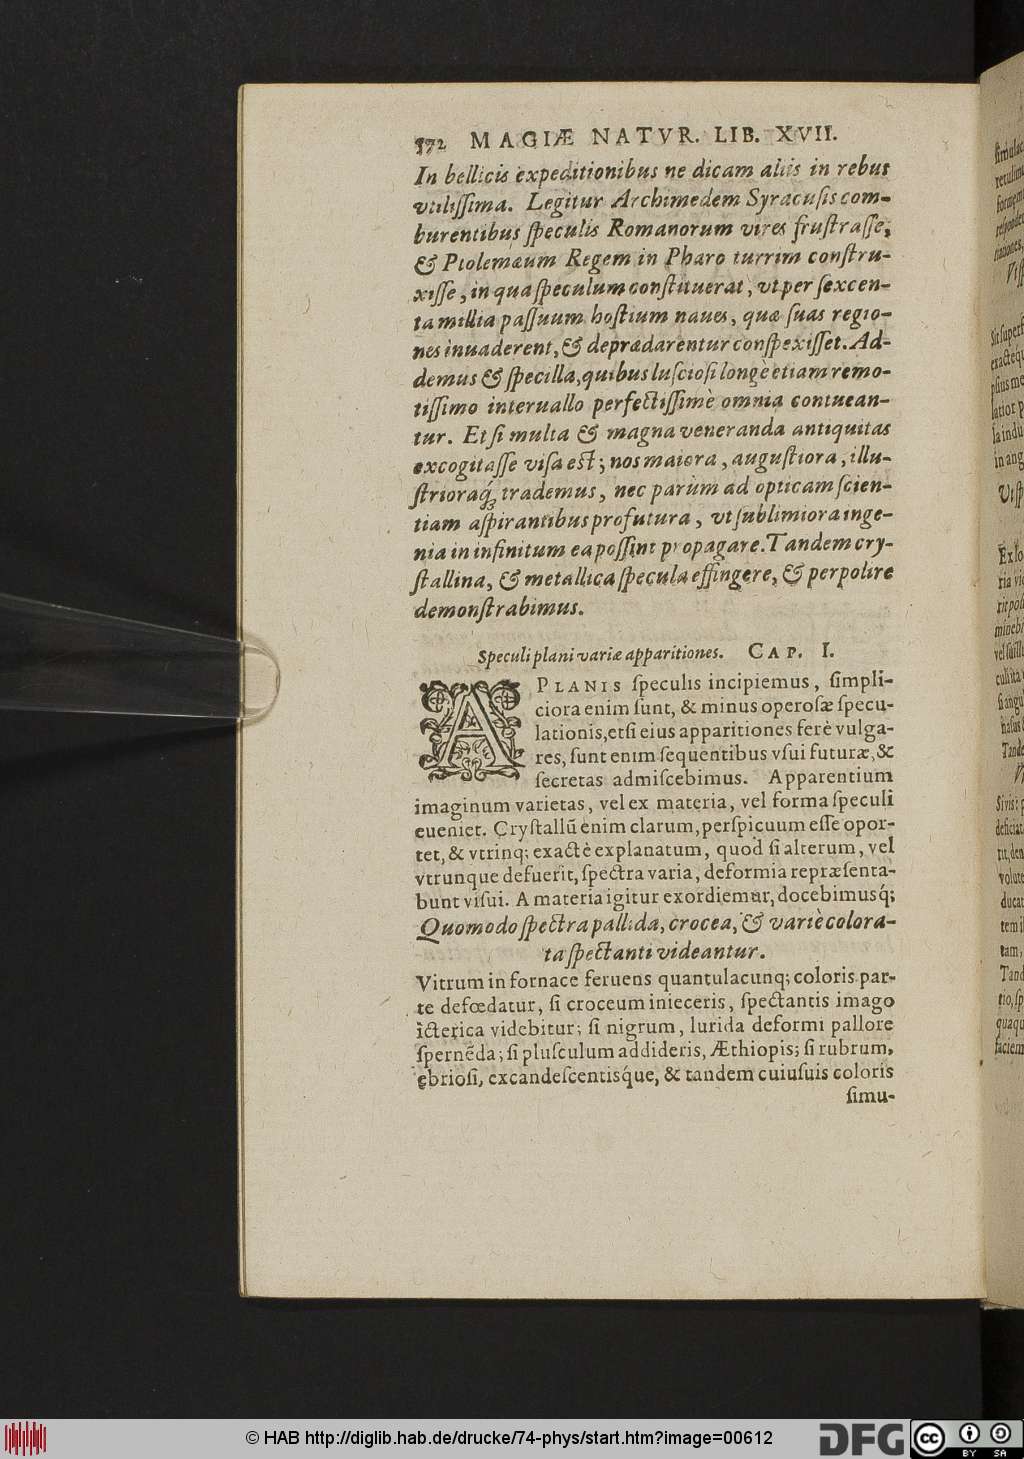 572 MAGIÆ NATVR. LIB. XVII.
In bellicis expeditionibus ne dicam aliis in rebus
vtilissima. Legitur Archimedem Syracusis com-
burentibus speculis Romanorum vires frustrasse,
& Ptolemæum Regem in Pharo turrim constru-
xisse, in qua speculum constituerat, vt per sexcen-
ta millia passuum hostium naues, quæ suas regio-
nes inuaderent, & deprædarentur conspexisset. Ad-
demus & specilla, quibus lusciosi longè etiam remo-
tissimo interuallo perfectissimè omnia contuean-
tur. Et si multa & magna veneranda antiquitas
excogitasse visa est; nos maiora, augustiora, illu-
strioraq́; trademus, nec parùm ad opticam scien-
tiam aspirantibus profutura, vt sublimiora inge-
nia in infinitum ea possint propagare. Tandem cry-
stallina, & metallica specula effingere, & perpolire
demonstrabimus.
Speculi plani variæ apparitiones. CAP. I.
A PLANIS speculis incipiemus, simpli-
ciora enim sunt, & minus operosæ specu-
lationis, etsi eius apparitiones ferè vulga-
res, sunt enim sequentibus vsui futuræ, &
secretas admiscebimus. Apparentium
imaginum varietas, vel ex materia, vel forma speculi
eueniet. Crystallũ enim clarum, perspicuum esse opor-
tet, & vtrinq; exactè explanatum, quod si alterum, vel
vtrunque defuerit, spectra varia, deformia repræsenta-
bunt visui. A materia igitur exordiemur, docebimusq́;
Quomodo spectra pallida, crocea, & variè colora-
ta spectanti videantur.
Vitrum in fornace feruens quantulacunq; coloris par-
te defœdatur, si croceum inieceris, spectantis imago
icterica videbitur; si nigrum, lurida deformi pallore
spernẽda; si plusculum addideris, Æthiopis; si rubrum,
ebriosi, excandescentisq́ue, & tandem cuiusuis coloris
simu-
© HAB http://diglib.hab.de/drucke/74-phys/start.htm?image=00612
DFG
cc BY SA